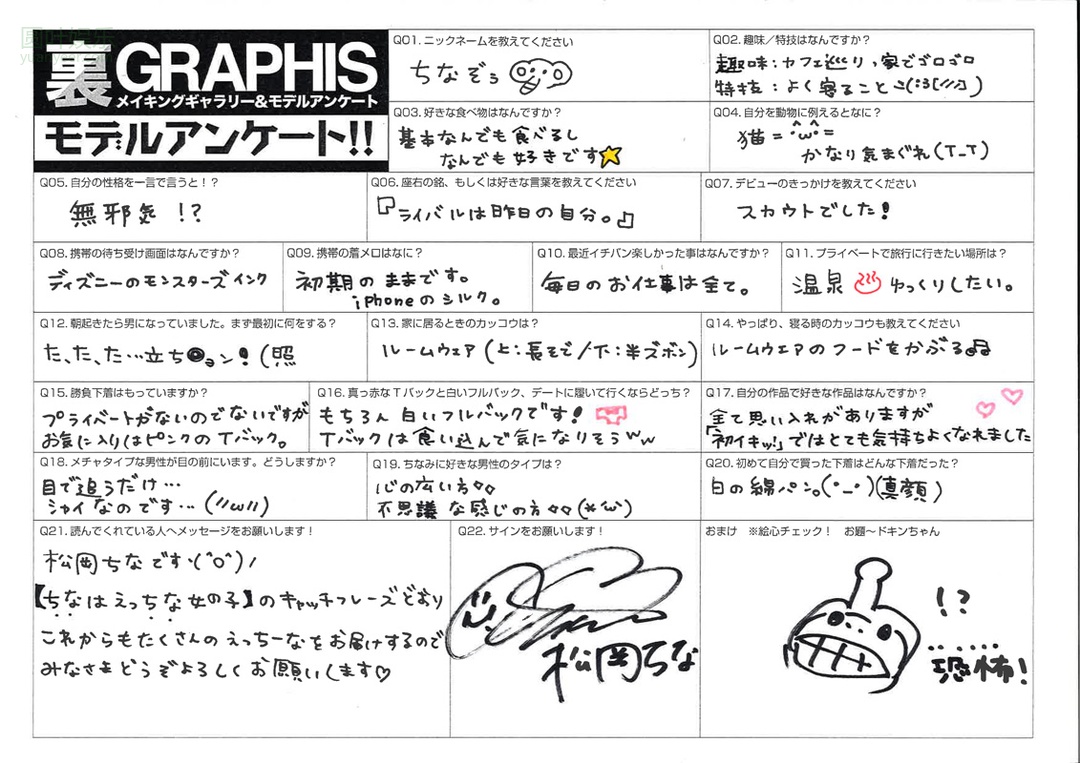 裏GRAPHIS
メイキングギャラリー&モデルアンケート
モデルアンケート!!
Q01. ニックネームを教えてください
ちなぞぅ
Q02. 趣味／特技はなんですか？
趣味：カフェ巡りっ家でゴロゴロ
特技：よく寝ること
Q03. 好きな食べ物はなんですか？
基本なんでも食べるし
なんでも好きです
Q04. 自分を動物に例えるとなに？
猫=^ω^=
かなり気まぐれ(T_T)
Q05. 自分の性格を一言で言うと！？
無邪気 !?
Q06. 座右の銘、もしくは好きな言葉を教えてください
『ライバルは昨日の自分。』
Q07. デビューのきっかけを教えてください
スカウトでした！
Q08. 携帯の待ち受け画面はなんですか？
ディズニーのモンスターズインク
Q09. 携帯の着メロはなに？
初期のままです。
iPhoneのシルク。
Q10. 最近イチバン楽しかった事はなんですか？
毎日のお仕事は全て。
Q11. プライベートで旅行に行きたい場所は？
温泉♨ゆっくりしたい。
Q12. 朝起きたら男になっていました。まず最初に何をする？
た、た、た…立ち●ョン！(照
Q13. 家に居るときのカッコウは？
ルームウェア(上：長そで/下：半ズボン)
Q14. やっぱり、寝る時のカッコウも教えてください
ルームウェアのフードをかぶる♫
Q15. 勝負下着はもっていますか？
プライベートがないのでないですが
お気に入りはピンクのTバック。
Q16. 真っ赤なTバックと白いフルバック、デートに履いて行くならどっち？
もちろん白いフルバックです！
Tバックは食い込んで気になりそうww
Q17. 自分の作品で好きな作品はなんですか？
全て思い入れがありますが
「初イキッ!」ではとても気持ちよくなれました
Q18. メチャタイプな男性が目の前にいます。どうしますか？
目で追うだけ…
シャイなのです…(//ω//)
Q19. ちなみに好きな男性のタイプは？
心の広い方
不思議な感じの方
Q20. 初めて自分で買った下着はどんな下着だった？
白の綿パン。(・_・)(真顔)
Q21. 読んでくれている人へメッセージをお願いします！
松岡ちなです(^o^)/
【ちなはえっちな女の子】のキャッチフレーズどおり
これからもたくさんのえっちーなをお届けするので
みなさまどうぞよろしくお願いします♡
Q22. サインをお願いします！
松岡ちな
おまけ ※絵心チェック！ お題〜ドキンちゃん
!?
……
恐怖！